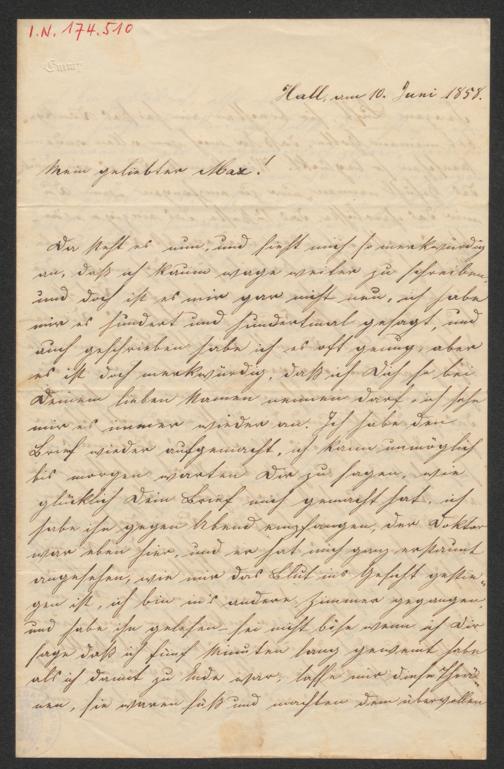 I.N. 174.510
Hall, am 10. Juni 1858.
Mein geliebter Max!
Da steht es nun, und sieht mich so merkwürdig
an, daß ich kaum wage weiter zu schreiben,
und doch ist es mir gar nicht neu, ich habe
mir es hundert und hundertmal gesagt, und
auch geschrieben habe ich es oft genug, aber
es ist doch merkwürdig, daß ich Dich so bei
Deinem lieben Namen nennen darf, ich sehe
mir es immer wieder an. Ich habe den
Brief wieder aufgemacht, ich kann unmöglich
bis morgen warten Dir zu sagen, wie
glücklich Dein Brief mich gemacht hat, ich
habe ihn gegen Abend empfangen, der Doktor
war eben hier, und er hat mich ganz erstaunt
angesehen, wie mir das Blut ins Gesicht gestie-
gen ist, ich bin in's andere Zimmer gegangen,
und habe ihn gelesen – sei nicht böse wenn ich Dir
sage daß ich fünf Minuten lang geweint habe
als ich damit zu Ende war, lasse mir diese Thrä-
nen, sie waren süß und machten dem übervollen